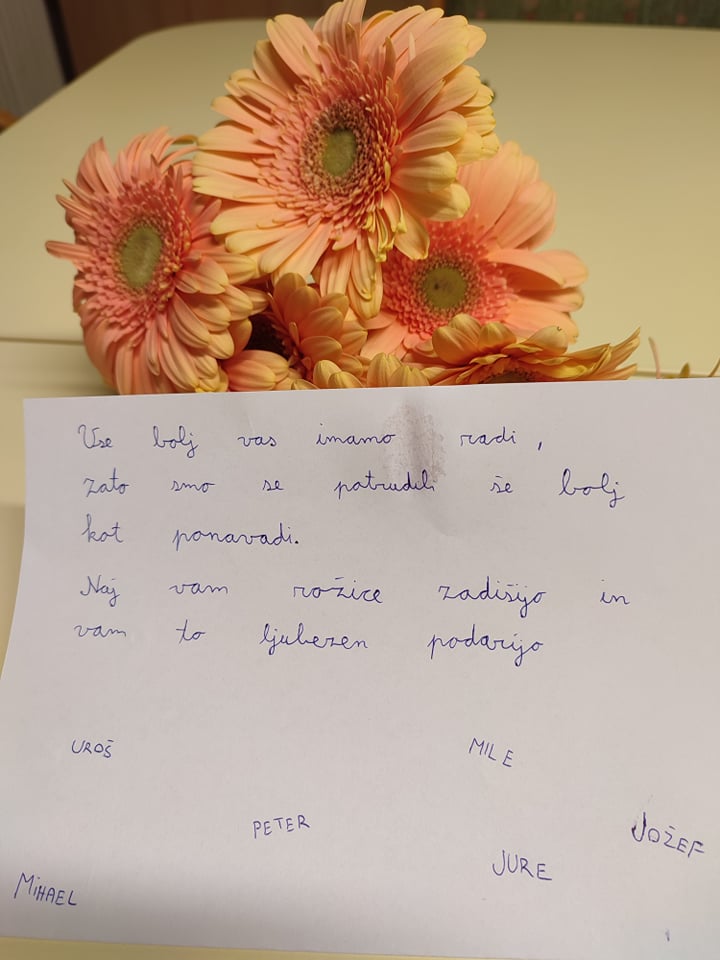 Vse bolj vas imamo radi,
zato smo se potrudili še bolj
kot ponavadi.
Naj vam rožice zadišijo in
vam to ljubezen podarijo
UROŠ
MILE
PETER
JOŽEF
JURE
MIHAEL